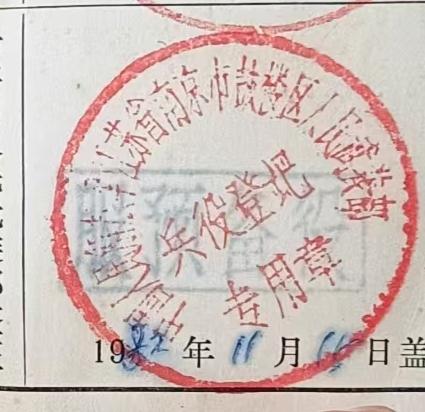 中国人民解放军江苏省南京市鼓楼区人民武装部
兵役登记
专用章
服预备役
1982年11月15日盖